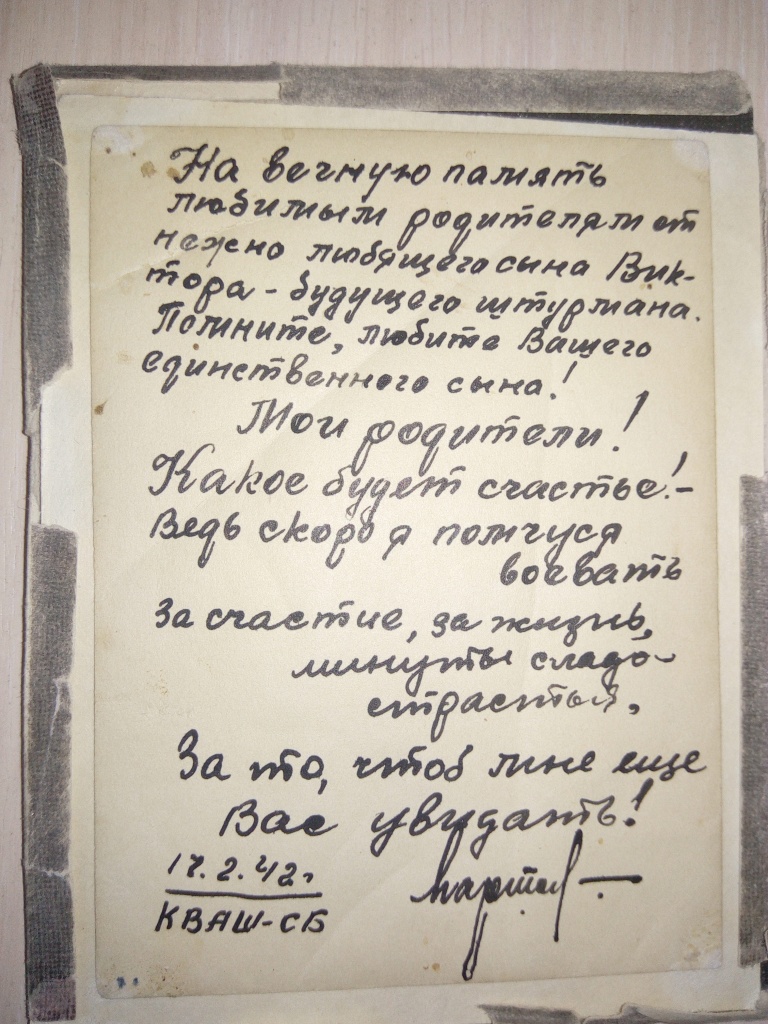 На вечную память
любимым родителям от
нежно любящего сына Вик-
тора - будущего штурмана.
Помните, любите Вашего
единственного сына!
Мои родители!
Какое будет счастье! -
Ведь скоро я помчуся
воевать
За счастие, за жизнь,
минуты сладо-
страстья,
За то, чтоб мне еще
Вас увидать!
КВАШ-СБ